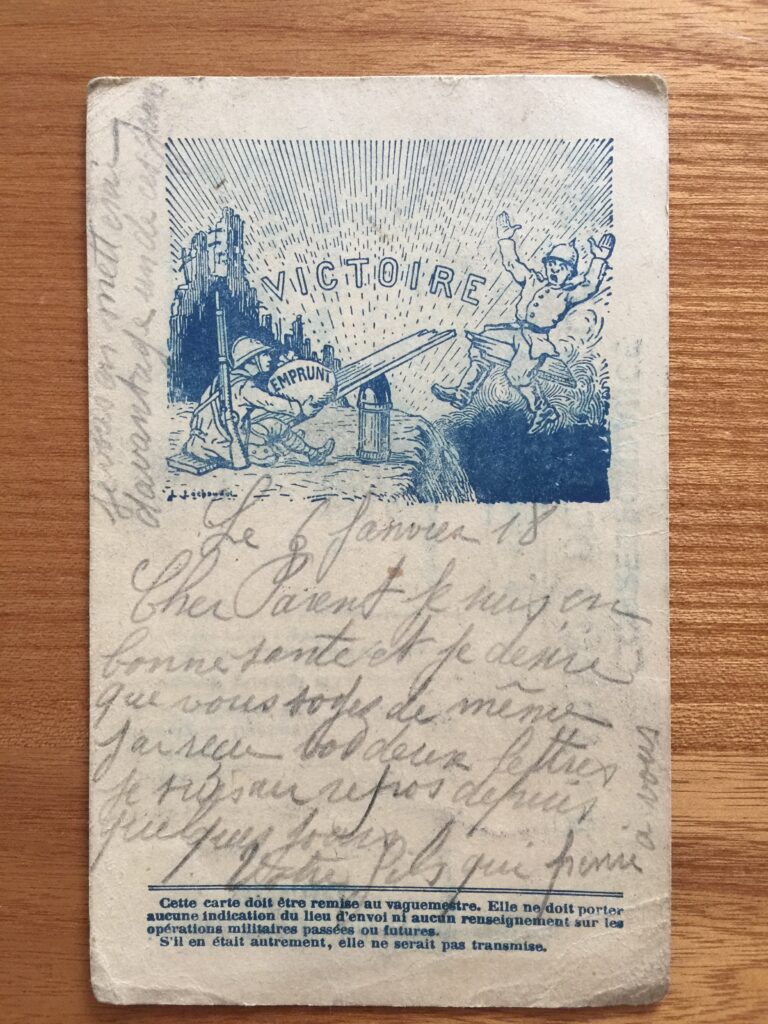 VICTOIRE
EMPRUNT
Le 6 Janvier 18
Cher Parent Je suis en
bonne sante et je desire
que vous soyez de même
J'ai reçu vos deux lettres
Je suis au repos depuis
quelques jours
Votre fils qui pense
a vous
davantage
Cette carte doit être remise au vaguemestre. Elle ne doit porter
aucune indication du lieu d'envoi ni aucun renseignement sur les
opérations militaires passées ou futures.
S'il en était autrement, elle ne serait pas transmise.